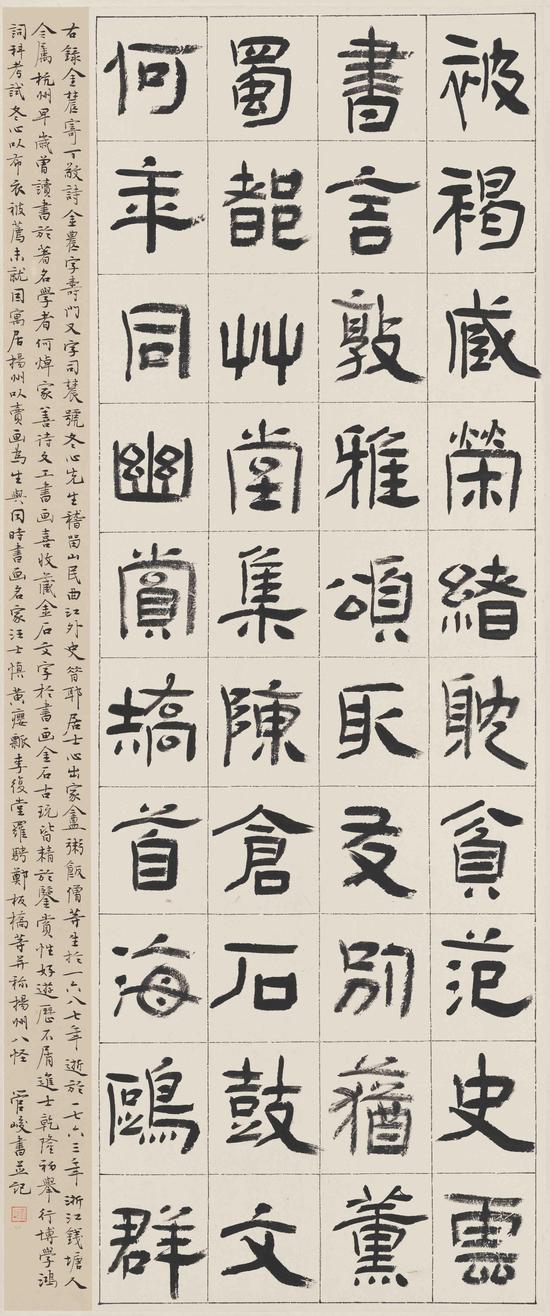 被褐臧榮緒耽貧范史雲
書言敦雅頌取友別蕕薰
蜀都艸堂集陳倉石鼓文
何年同幽賞搞首海鷗群
右錄金農寄丁敬詩金農字壽門又字司農號冬心先生稽留山民曲江外史昔耶居士心出家盦粥飯僧等生於一六八七年逝於一七六三年浙江錢塘人
今属杭州早歲曾讀書於著名學者何焯家善诗文工書画喜收藏金石文字於書画金石古玩皆精於鑒賞性好遊歷不屑進士乾隆初舉行博學鴻
詞科考試冬心以布衣被薦未就因寓居揚州以賣画為生與同時書画名家汪士慎黃癭瓢李復堂羅聘鄭板橋等并称揚州八怪 管峻書并記